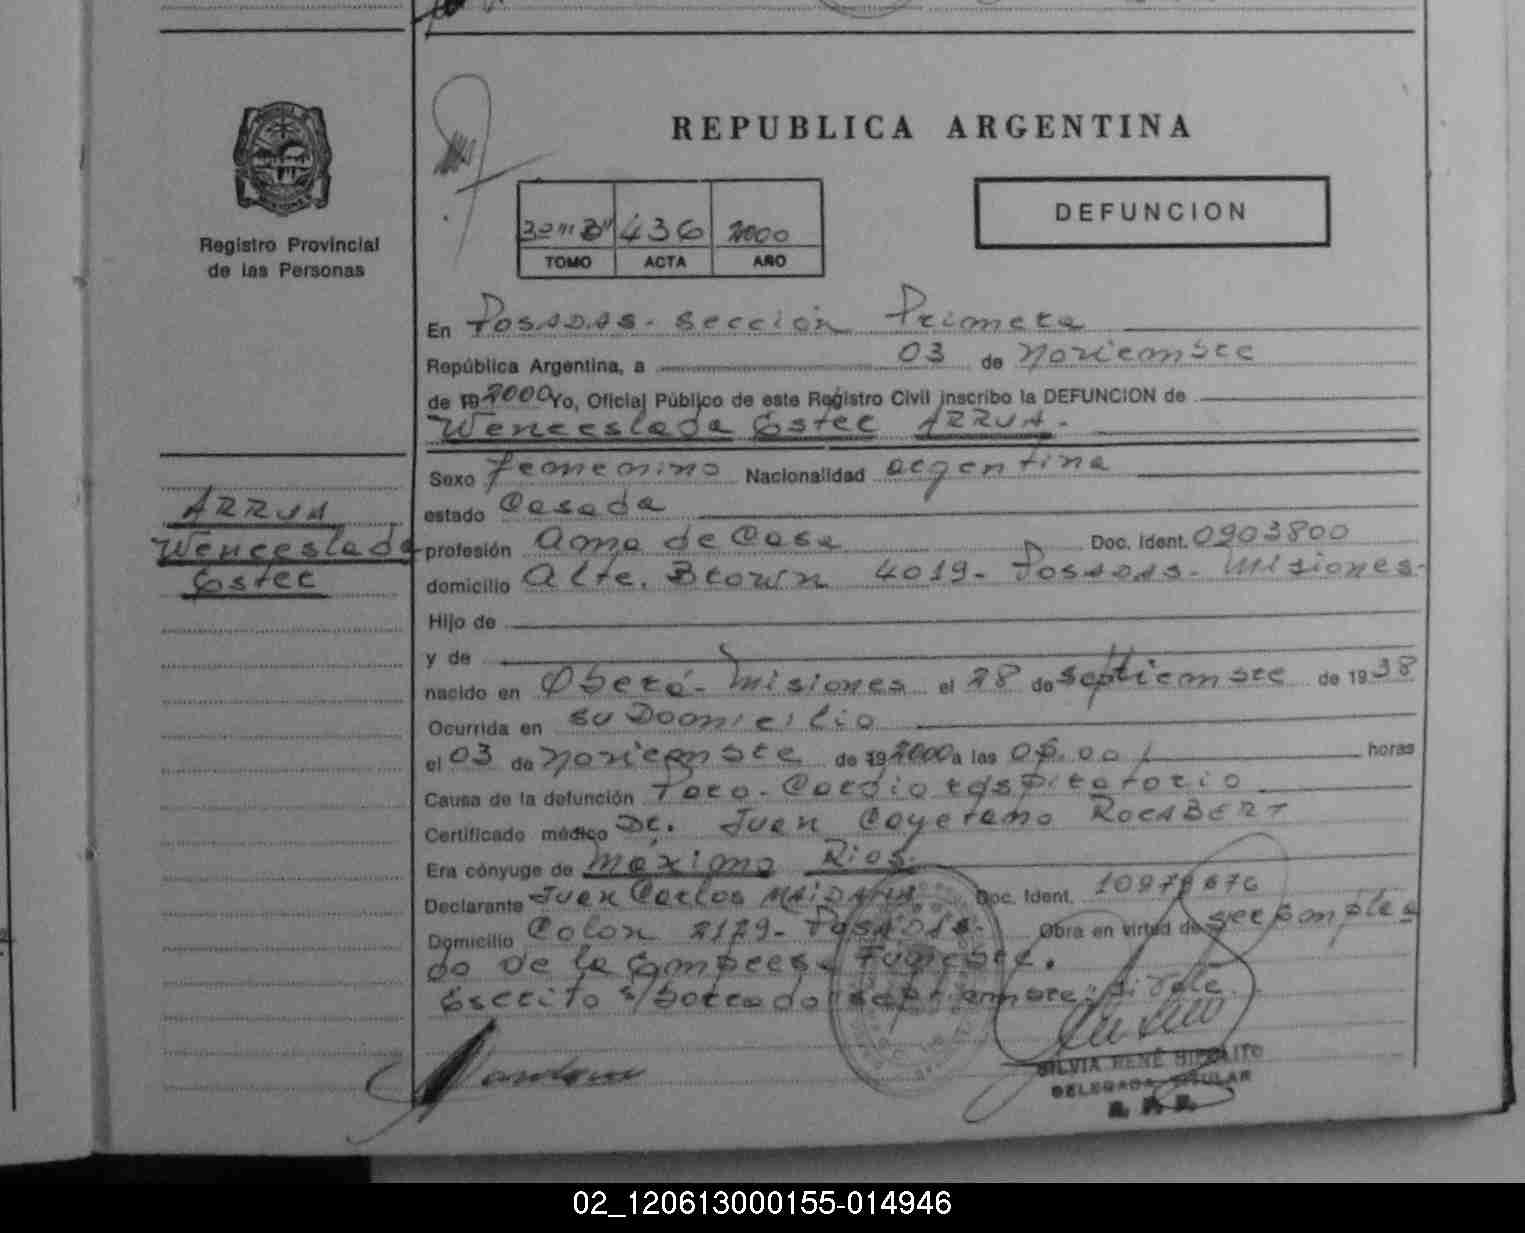 REPUBLICA ARGENTINA
DEFUNCION
436 2000
TOMO ACTA AÑO
Registro Provincial
de las Personas
En Posadas - sección Primera
República Argentina, a 03 de noviembre
de 19 2000 Yo, Oficial Público de este Registro Civil inscribo la DEFUNCION de
Wenceslada Ester ARRUA.
Sexo femenino Nacionalidad argentina
estado Casada
ARRUA
Wenceslada
Ester
profesión Ama de Casa Doc. Ident. 0903800
domicilio Alte. Brown 4019 - Posadas - Misiones -
Hijo de
y de
nacido en Oberá - Misiones el 28 de septiembre de 1938
Ocurrida en su Domicilio
el 03 de noviembre de 19 2000 a las horas
Causa de la defunción Paro - Cardio respiratorio
Certificado médico Dr. Juan Cayetano ROCABERT
Era cónyuge de Máximo Rios.
Declarante Juan Carlos MAIDANA Doc. Ident.
Domicilio Colon 2129 - Posadas - Obra en virtud de ser emplea
do de la Empresa Funebre.
Escrito s/borrado: septiembre:
SILVIA RENÉ HIPOLITO
DELEGADA TITULAR
02_120613000155-014946